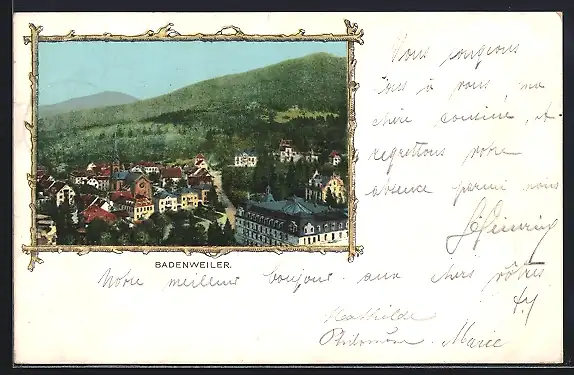 Nous songeons
tous à vous, ma
chère cousine, et
regrettons votre
absence parmi nous
BADENWEILER.
Notre meilleur bonjour aux chers vôtres
Mathilde
Philomène Marie